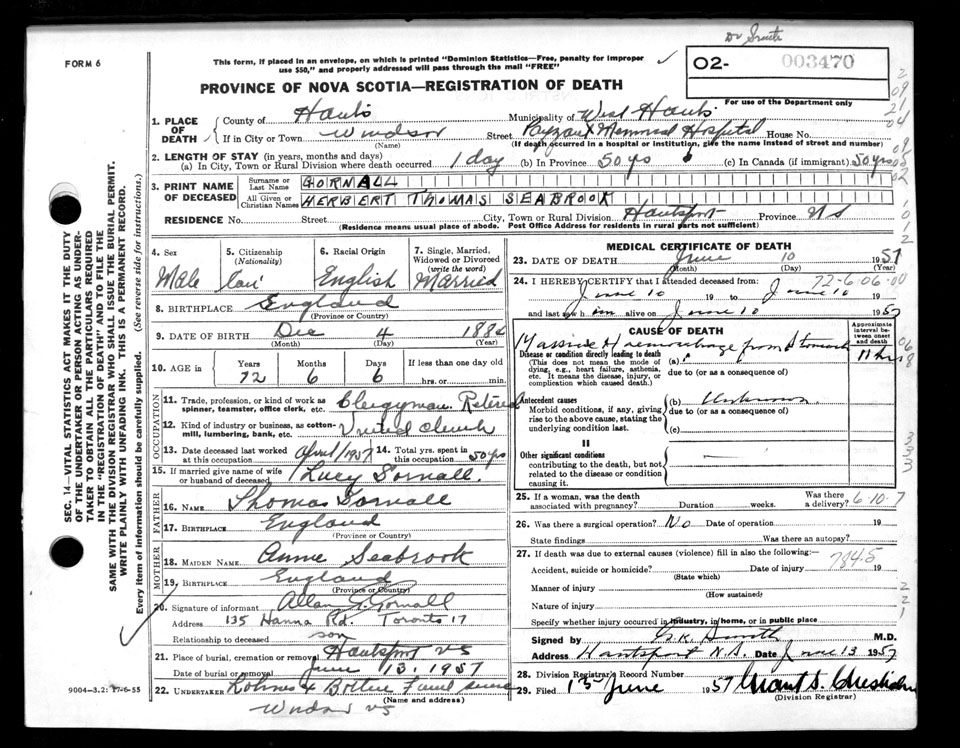 Dr Smith
FORM 6
This form, if placed in an envelope, on which is printed "Dominion Statistics—Free, penalty for improper
use $50," and properly addressed will pass through the mail "FREE"
02- 003470
For use of the Department only
PROVINCE OF NOVA SCOTIA—REGISTRATION OF DEATH
1. PLACE OF DEATH
County of Hants Municipality of West Hants
If in City or Town Windsor Street Payzant Memorial Hospital House No.
(Name) (If death occurred in a hospital or institution, give the name instead of street and number)
2. LENGTH OF STAY (in years, months and days)
(a) In City, Town or Rural Division where death occurred 1 day (b) In Province 50 yrs (c) In Canada (if immigrant) 50 yrs
3. PRINT NAME OF DECEASED
Surname or Last Name GORNALL
All Given or Christian Names HERBERT THOMAS SEABROOK
RESIDENCE No. Street City, Town or Rural Division Hantsport Province N S
(Residence means usual place of abode. Post Office Address for residents in rural parts not sufficient)
4. Sex
Male
5. Citizenship
(Nationality)
6. Racial Origin
English
7. Single, Married, Widowed or Divorced
(write the word)
Married
8. BIRTHPLACE England
(Province or Country)
9. DATE OF BIRTH Dec 4 1884
(Month) (Day) (Year)
10. AGE in Years Months Days If less than one day old
72 6 6 hrs. or min.
OCCUPATION
11. Trade, profession, or kind of work as
spinner, teamster, office clerk, etc. Clergyman Retired
12. Kind of industry or business, as cotton-
mill, lumbering, bank, etc. United Church
13. Date deceased last worked
at this occupation April/1957
14. Total yrs. spent in
this occupation 50 yrs
15. If married give name of wife
or husband of deceased Lucy Gornall.
FATHER
16. NAME Thomas Gornall
17. BIRTHPLACE England
(Province or Country)
MOTHER
18. MAIDEN NAME Annie Seabrook
19. BIRTHPLACE England
(Province or Country)
20. Signature of informant Allan G. Gornall
Address 135 Hanna Rd. Toronto 17
Relationship to deceased son
21. Place of burial, cremation or removal Hantsport NS
Date of burial or removal June 13. 1957
22. UNDERTAKER
(Name and address)
Windsor NS
MEDICAL CERTIFICATE OF DEATH
23. DATE OF DEATH June 10 1957
(Month) (Day) (Year)
24. I HEREBY CERTIFY that I attended deceased from: 72-6-06-00
June 10 19 to June 10 19
and last saw h im alive on June 10 1957
CAUSE OF DEATH
Approximate interval between onset and death
Massive Hemorrhage from Stomach 11 hrs
Disease or condition directly leading to death (a)
(This does not mean the mode of dying, e.g., heart failure, asthenia, etc. It means the disease, injury, or complication which caused death.)
due to (or as a consequence of)
Antecedent causes (b) Unknown
Morbid conditions, if any, giving rise to the above cause, stating the underlying condition last.
due to (or as a consequence of)
(c)
II
Other significant conditions
contributing to the death, but not related to the disease or condition causing it.
25. If a woman, was the death
associated with pregnancy? Duration weeks. Was there a delivery? 6-10-7
26. Was there a surgical operation? No Date of operation 19
State findings Was there an autopay?
27. If death was due to external causes (violence) fill in also the following:— 784.5
Accident, suicide or homicide? Date of injury 19
(State which)
Manner of injury
(How sustained)
Nature of injury
Specify whether injury occurred in industry, in home, or in public place
Signed by G.K. Smith M.D.
Address Hantsport N.S. Date June 13 1957
28. Division Registrar's Record Number
29. Filed 13 June 1957
(Division Registrar)
SEC. 14—VITAL STATISTICS ACT MAKES IT THE DUTY
OF THE UNDERTAKER OR PERSON ACTING AS UNDER-
TAKER TO OBTAIN ALL THE PARTICULARS REQUIRED
IN THE "REGISTRATION OF DEATH" AND TO FILE THE
SAME WITH THE DIVISION REGISTRAR WHO SHALL ISSUE THE BURIAL PERMIT.
WRITE PLAINLY WITH UNFADING INK. THIS IS A PERMANENT RECORD.
Every item of information should be carefully supplied. (See reverse side for instructions.)
9004—3.2: 17-6-55